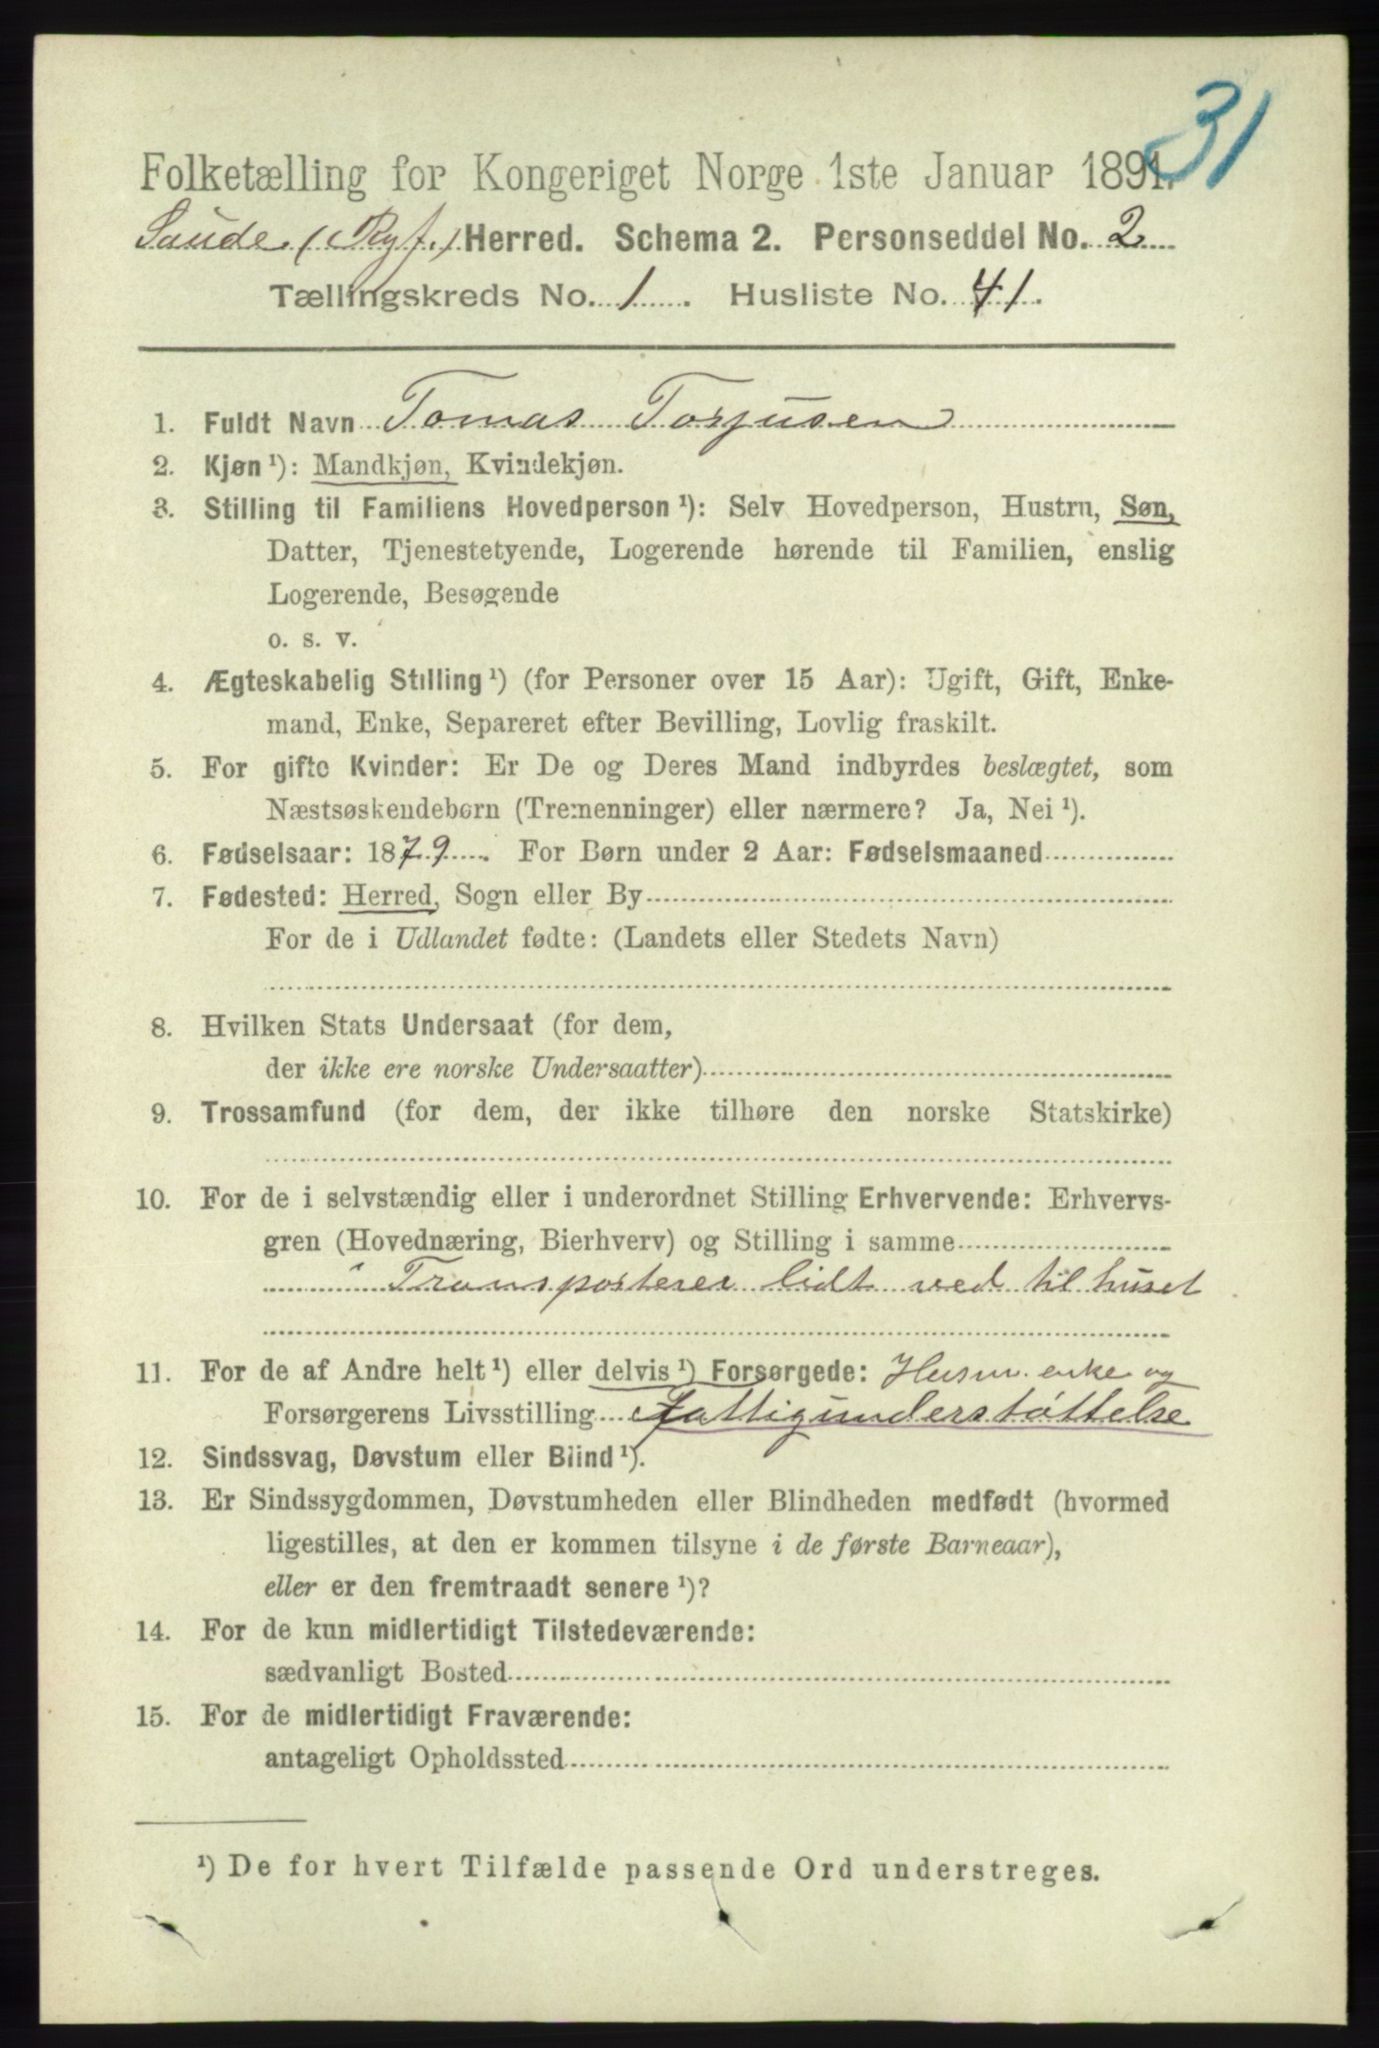 31
Folketælling for Kongeriget Norge 1ste Januar 1891.
Saude (Ryf.) Herred. Schema 2. Personseddel No. 2
Tællingskreds No. 1. Husliste No. 41.
1. Fuldt Navn Tomas Torjusen
2. Kjøn ¹): Mandkjøn, Kvindekjøn.
3. Stilling til Familiens Hovedperson ¹): Selv Hovedperson, Hustru, Søn,
Datter, Tjenestetyende, Logerende hørende til Familien, enslig
Logerende, Besøgende
o. s. v.
4. Ægteskabelig Stilling ¹) (for Personer over 15 Aar): Ugift, Gift, Enke-
mand, Enke, Separeret efter Bevilling, Lovlig fraskilt.
5. For gifte Kvinder: Er De og Deres Mand indbyrdes beslægtet, som
Næstsøskendebørn (Tremenninger) eller nærmere? Ja, Nei ¹).
6. Fødselsaar: 1879. For Børn under 2 Aar: Fødselsmaaned
7. Fødested: Herred, Sogn eller By
For de i Udlandet fødte: (Landets eller Stedets Navn)
8. Hvilken Stats Undersaat (for dem,
der ikke ere norske Undersaatter)
9. Trossamfund (for dem, der ikke tilhøre den norske Statskirke)
10. For de i selvstændig eller i underordnet Stilling Erhvervende: Erhvervs-
gren (Hovednæring, Bierhverv) og Stilling i samme
Transporterer lidt ved til huset
11. For de af Andre helt ¹) eller delvis ¹) Forsørgede: Husm. enke og
Forsørgerens Livsstilling Fattigunderstøttelse
12. Sindssvag, Døvstum eller Blind ¹).
13. Er Sindssygdommen, Døvstumheden eller Blindheden medfødt (hvormed
ligestilles, at den er kommen tilsyne i de første Barneaar),
eller er den fremtraadt senere ¹)?
14. For de kun midlertidigt Tilstedeværende:
sædvanligt Bosted
15. For de midlertidigt Fraværende:
antageligt Opholdssted
¹) De for hvert Tilfælde passende Ord understreges.